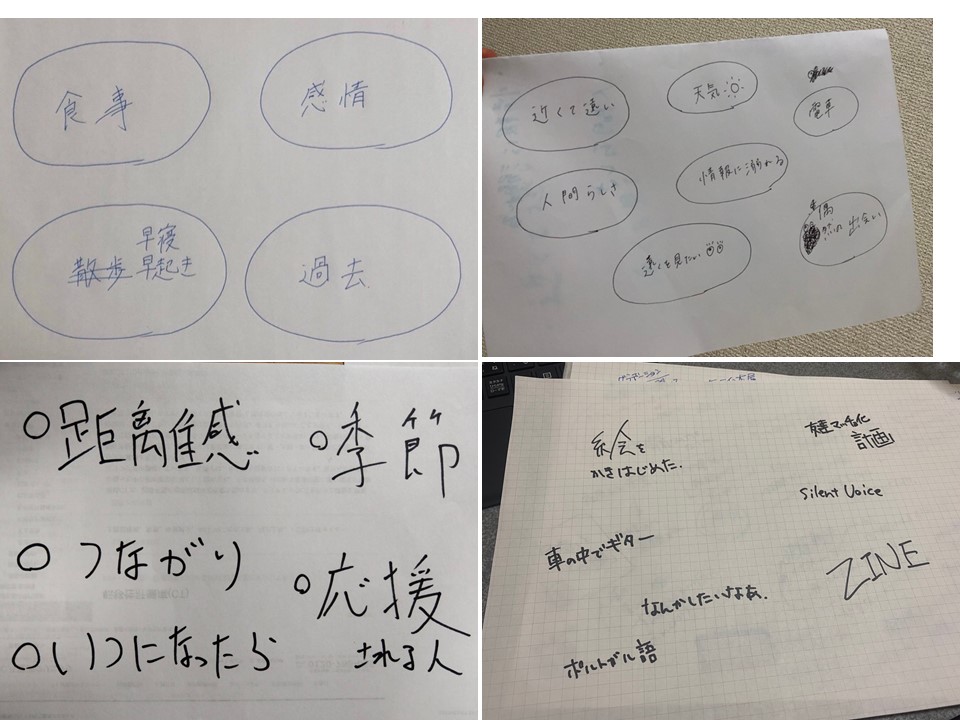 食事
感情
散歩 早寝
早起き
過去
近くて遠い
天気
電車
人間らしさ
情報に溺れる
遠くを見たい
偶
然の出会い
○距離感
○季節
○つながり
○応援
される人
○いつになったら
絵を
かきはじめた.
計画
Silent Voice
車の中でギター
ZINE
なんかしたいなあ.
ポルトガル語